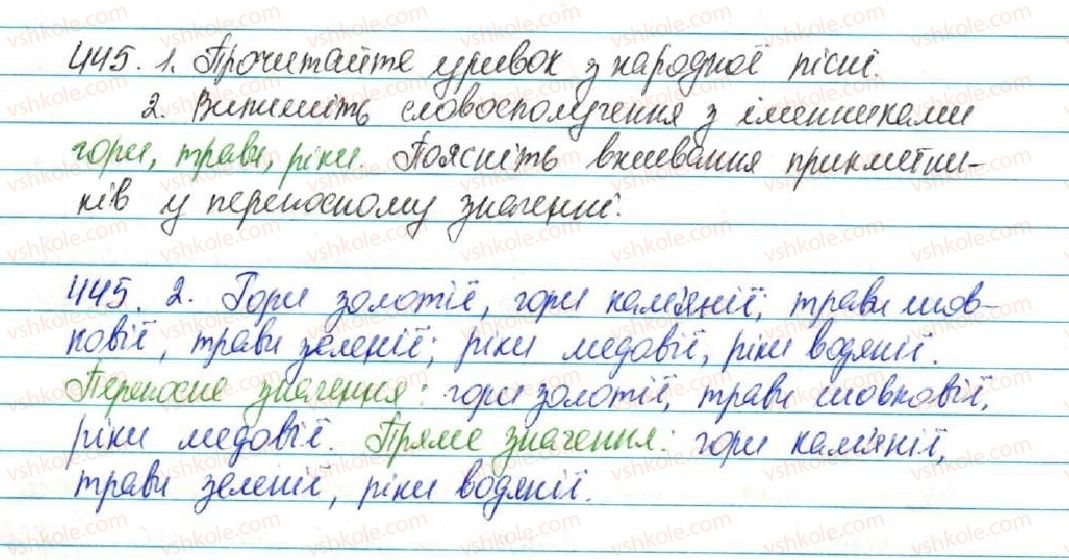 445. 1. Прочитайте уривок з народної пісні.
2. Випишіть словосполучення з іменниками
гори, трави, ріки. Поясніть вживання прикметни-
ків у переносному значенні.
445. 2. Гори золотії, гори кам'янії; трави шов-
ковії, трави зеленії; ріки медовії, ріки водянії.
Переносне значення: гори золотії, трави шовковії,
ріки медовії. Пряме значення: гори кам'янії,
трави зеленії, ріки водянії.